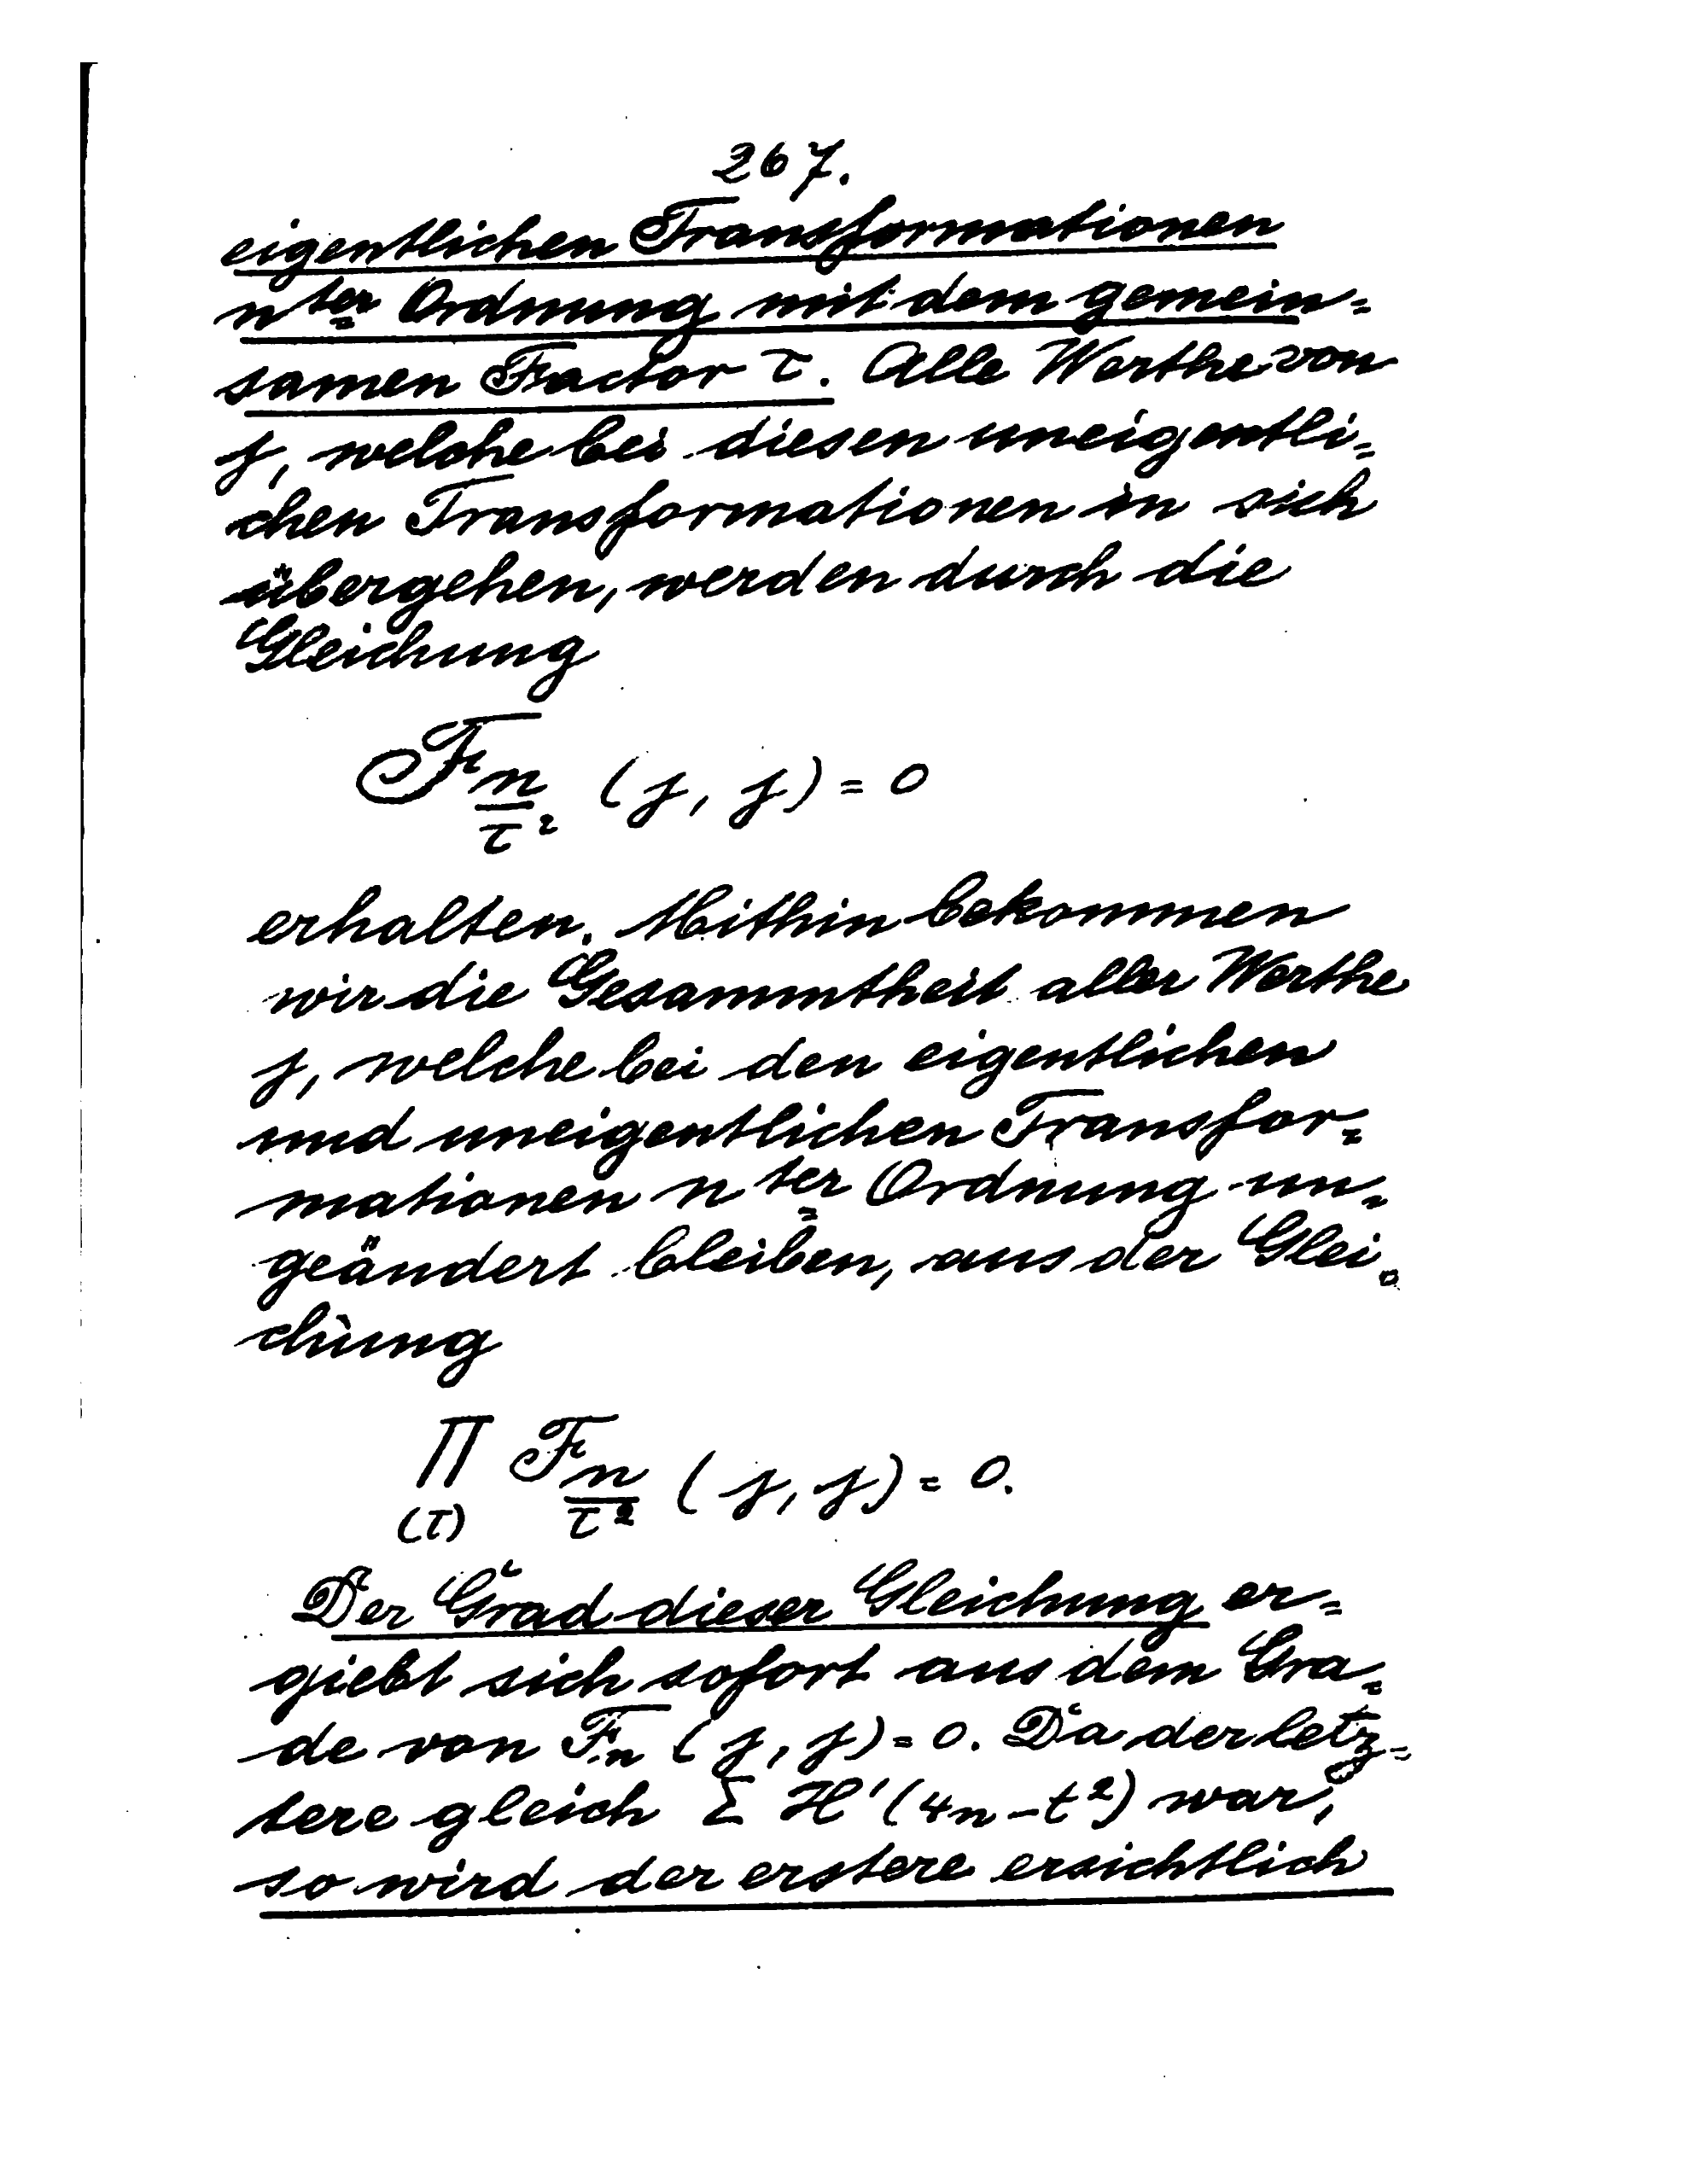 267.
eigentlichen Transformationen
n ter Ordnung mit dem gemein=
samen Factor τ. Alle Werthe von
j, welche bei diesen uneigentli=
chen Transformationen in sich
übergehen, werden durch die
Gleichung
F_{n/τ²} (j, j) = 0
erhalten. Mithin bekommen
wir die Gesammtheit aller Werthe
j, welche bei den eigentlichen
und uneigentlichen Transfor=
mationen n ter Ordnung un=
geändert bleiben, aus der Glei=
chung
∏_{(τ)} F_{n/τ²} (j, j) = 0.
Der Grad dieser Gleichung er=
giebt sich sofort aus dem Gra=
de von F_n (j, j) = 0. Da der letz=
tere gleich Σ H'(4n - t²) war,
so wird der erstere ersichtlich